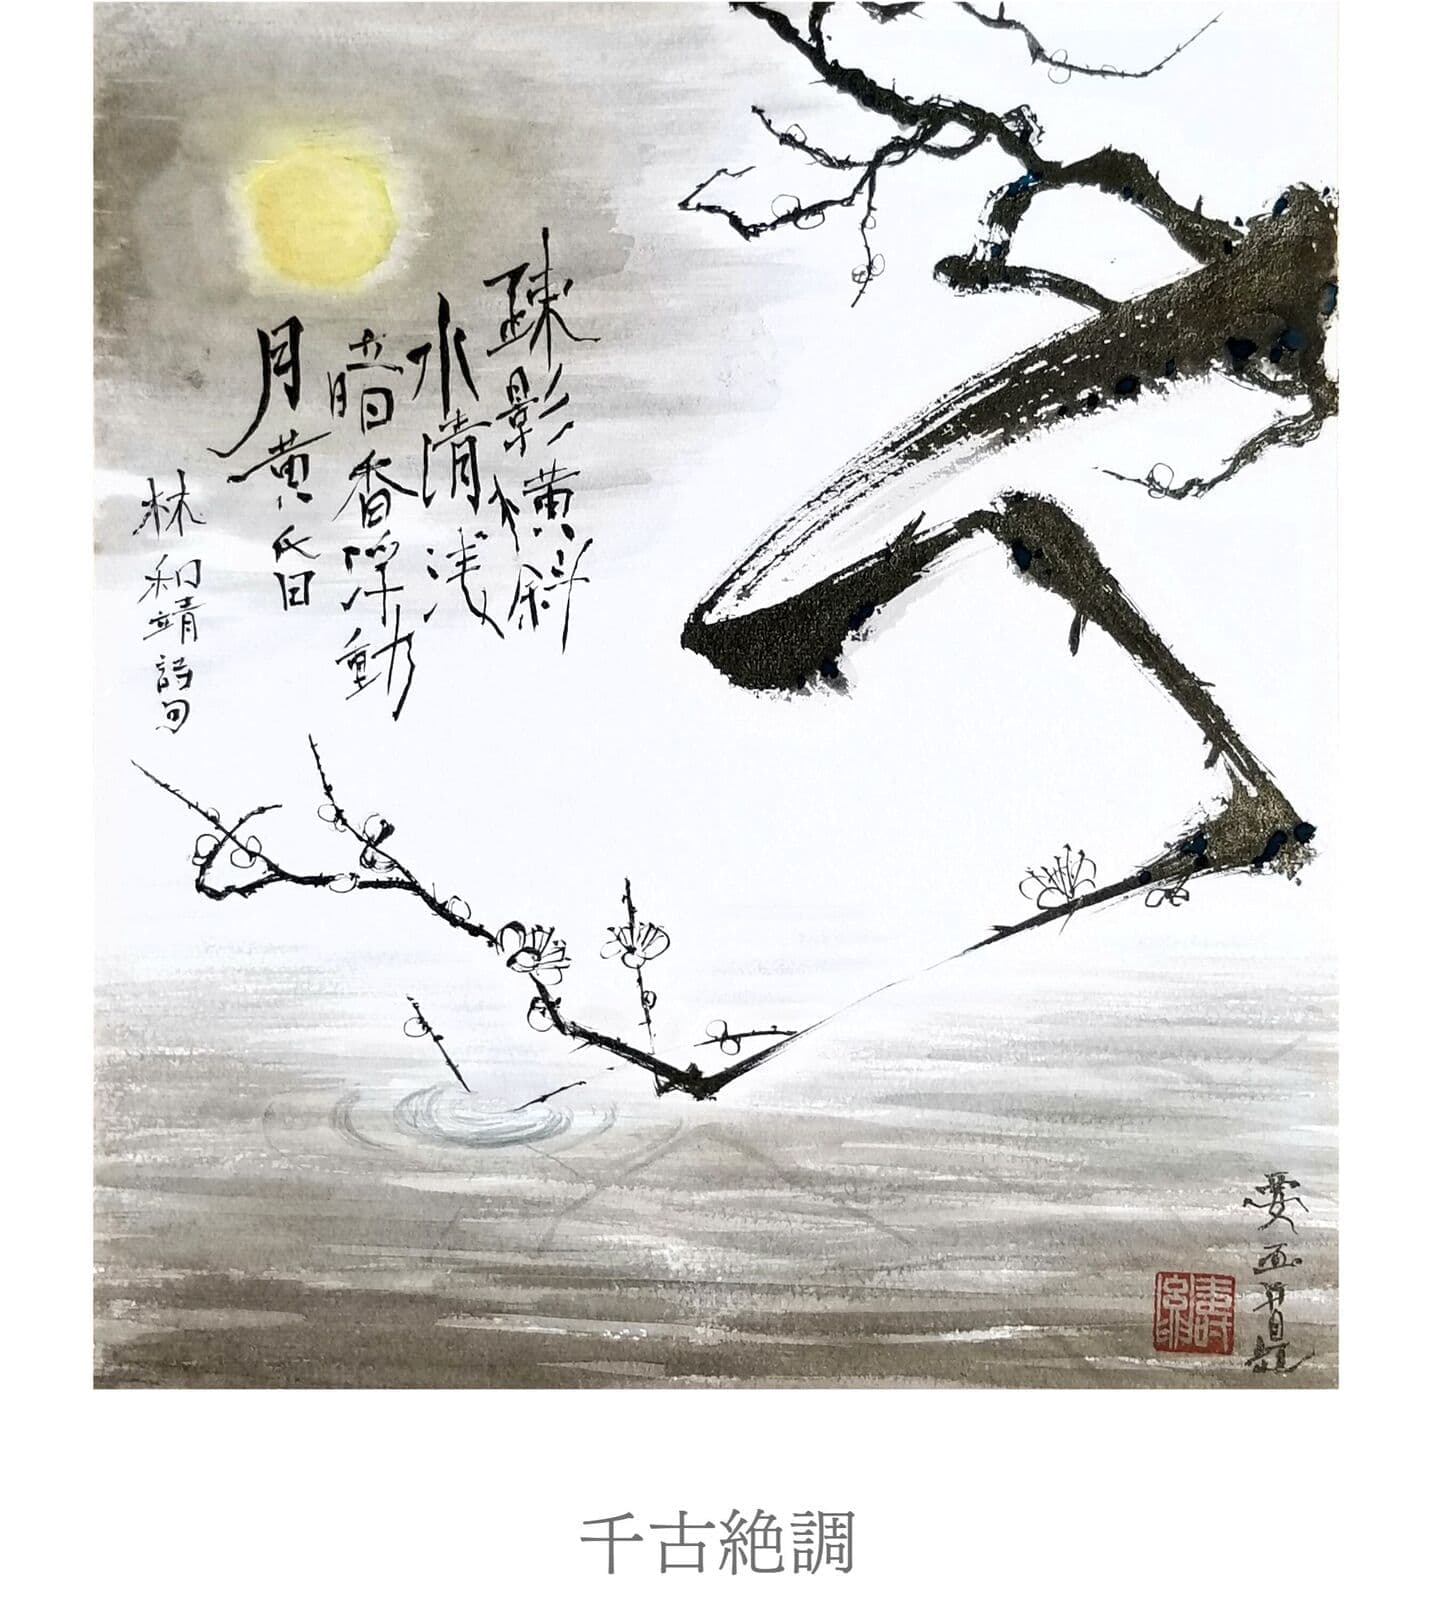 疎影横斜
水清浅
暗香浮動
月黄昏
林和靖詩句
千古絶調